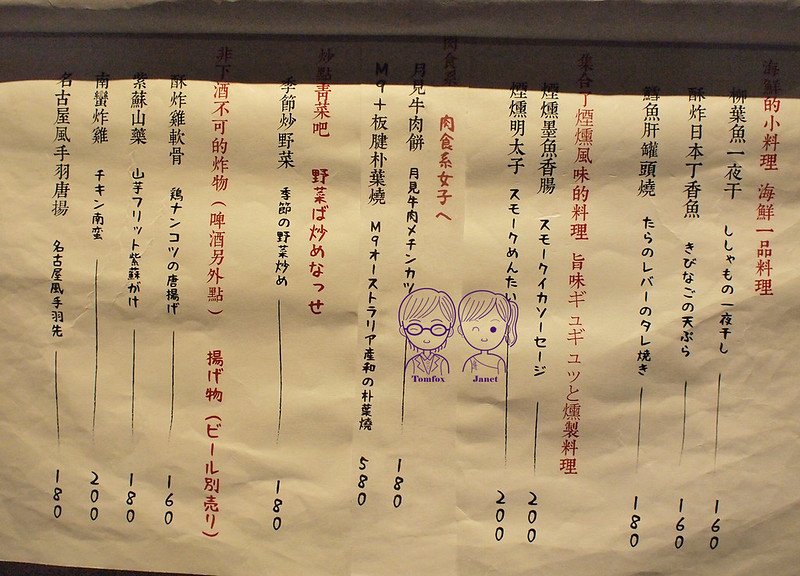 海鮮的小料理 海鮮一品料理
柳葉魚一夜干 ししゃもの一夜干し 160
酥炸日本丁香魚 きびなごの天ぷら 160
鱈魚肝罐頭燒 たらのレバーのタレ焼き 180
集合了煙燻風味的料理 旨味ギュギュッと燻製料理
煙燻墨魚香腸 スモークイカソーセージ 200
煙燻明太子 スモークめんたい 200
肉食系女子へ
月見牛肉餅 月見牛肉メチンカツ 180
M9+板腱朴葉燒 M9オーストラリア産和の朴葉燒 580
炒點青菜吧 野菜ば炒めなっせ
季節炒野菜 季節の野菜炒め 180
非下酒不可的炸物(啤酒另外點) 揚げ物(ビール別売り)
酥炸雞軟骨 鶏ナンコツの唐揚げ 160
紫蘇山藥 山芋フリット紫蘇がけ 180
南蠻炸雞 チキン南蛮 200
名古屋風手羽唐揚 名古屋風手羽先 180
Tomfox
Janet